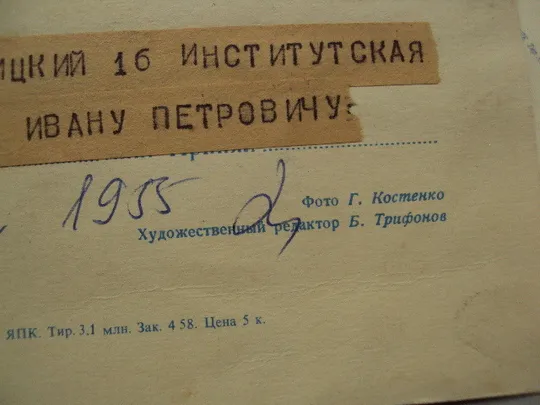 ИЦКИЙ 16 ИНСТИТУТСКАЯ
ИВАНУ ПЕТРОВИЧУ=
1955
Фото Г. Костенко
Художественный редактор Б. Трифонов
ЯПК. Тир. 3,1 млн. Зак. 458. Цена 5 к.